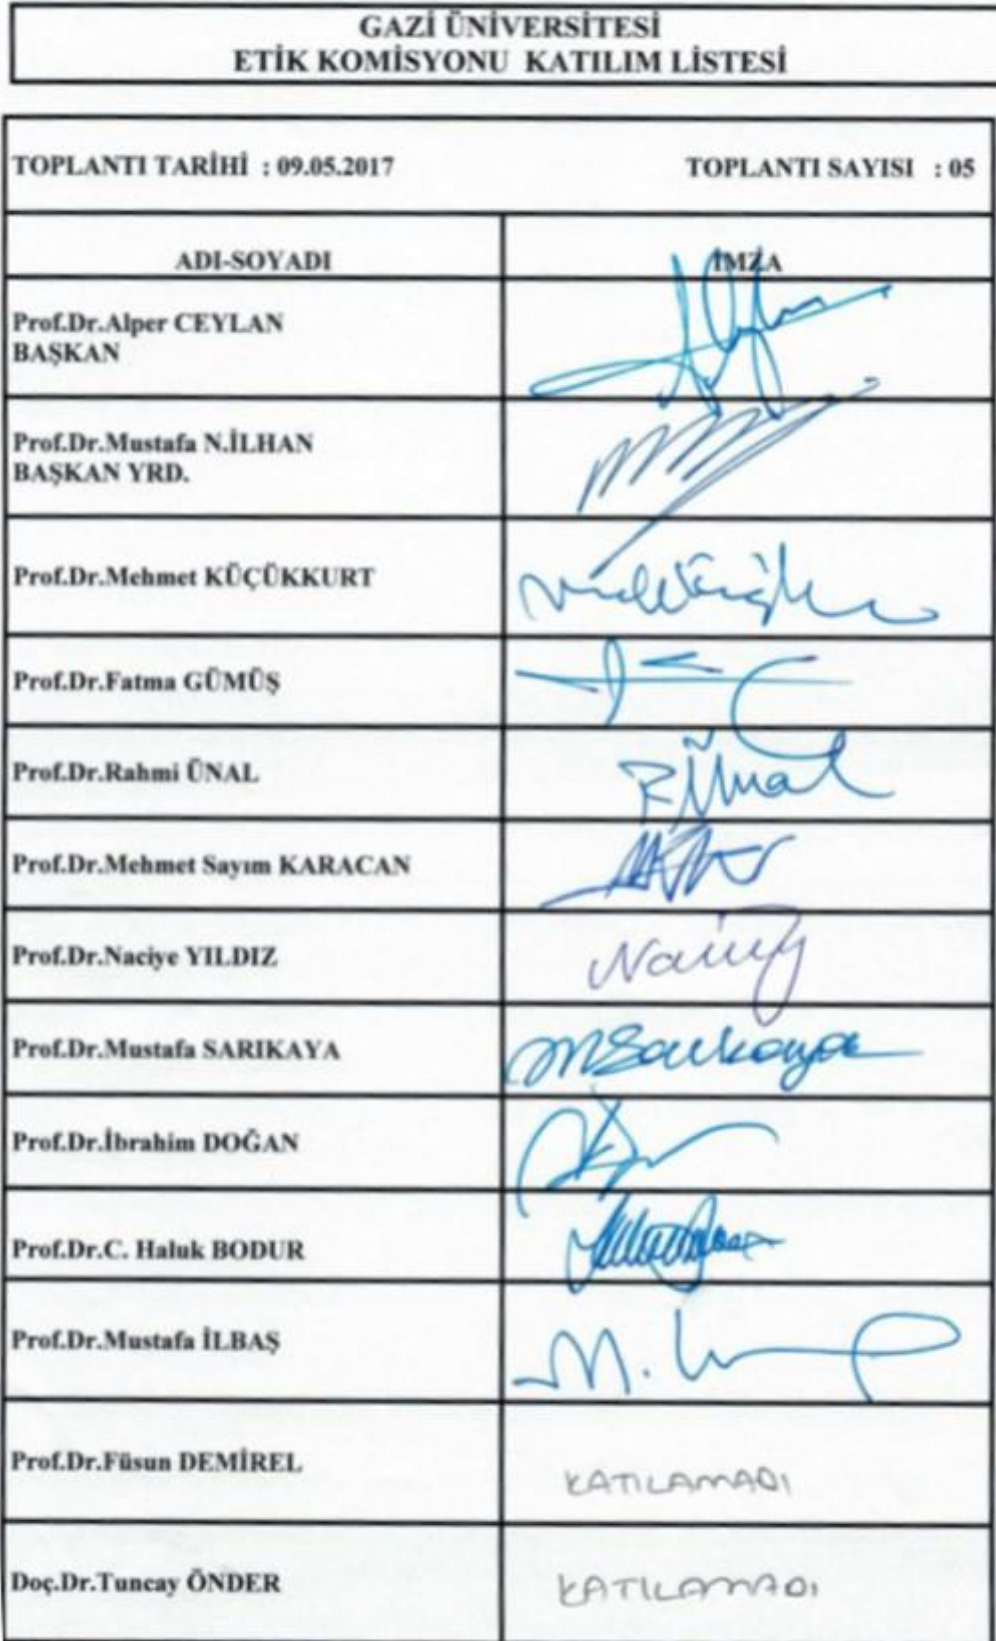 GAZİ ÜNİVERSİTESİ
ETİK KOMİSYONU KATILIM LİSTESİ
TOPLANTI TARİHİ : 09.05.2017 TOPLANTI SAYISI : 05
ADI-SOYADI İMZA
Prof.Dr.Alper CEYLAN
BAŞKAN
Prof.Dr.Mustafa N.İLHAN
BAŞKAN YRD.
Prof.Dr.Mehmet KÜÇÜKKURT
Prof.Dr.Fatma GÜMÜŞ
Prof.Dr.Rahmi ÜNAL
RÜnal
Prof.Dr.Mehmet Sayım KARACAN
Prof.Dr.Naciye YILDIZ
Prof.Dr.Mustafa SARIKAYA
MSarıkaya
Prof.Dr.İbrahim DOĞAN
Prof.Dr.C. Haluk BODUR
Prof.Dr.Mustafa İLBAŞ
Prof.Dr.Füsun DEMİREL KATILAMADI
Doç.Dr.Tuncay ÖNDER KATILAMADI